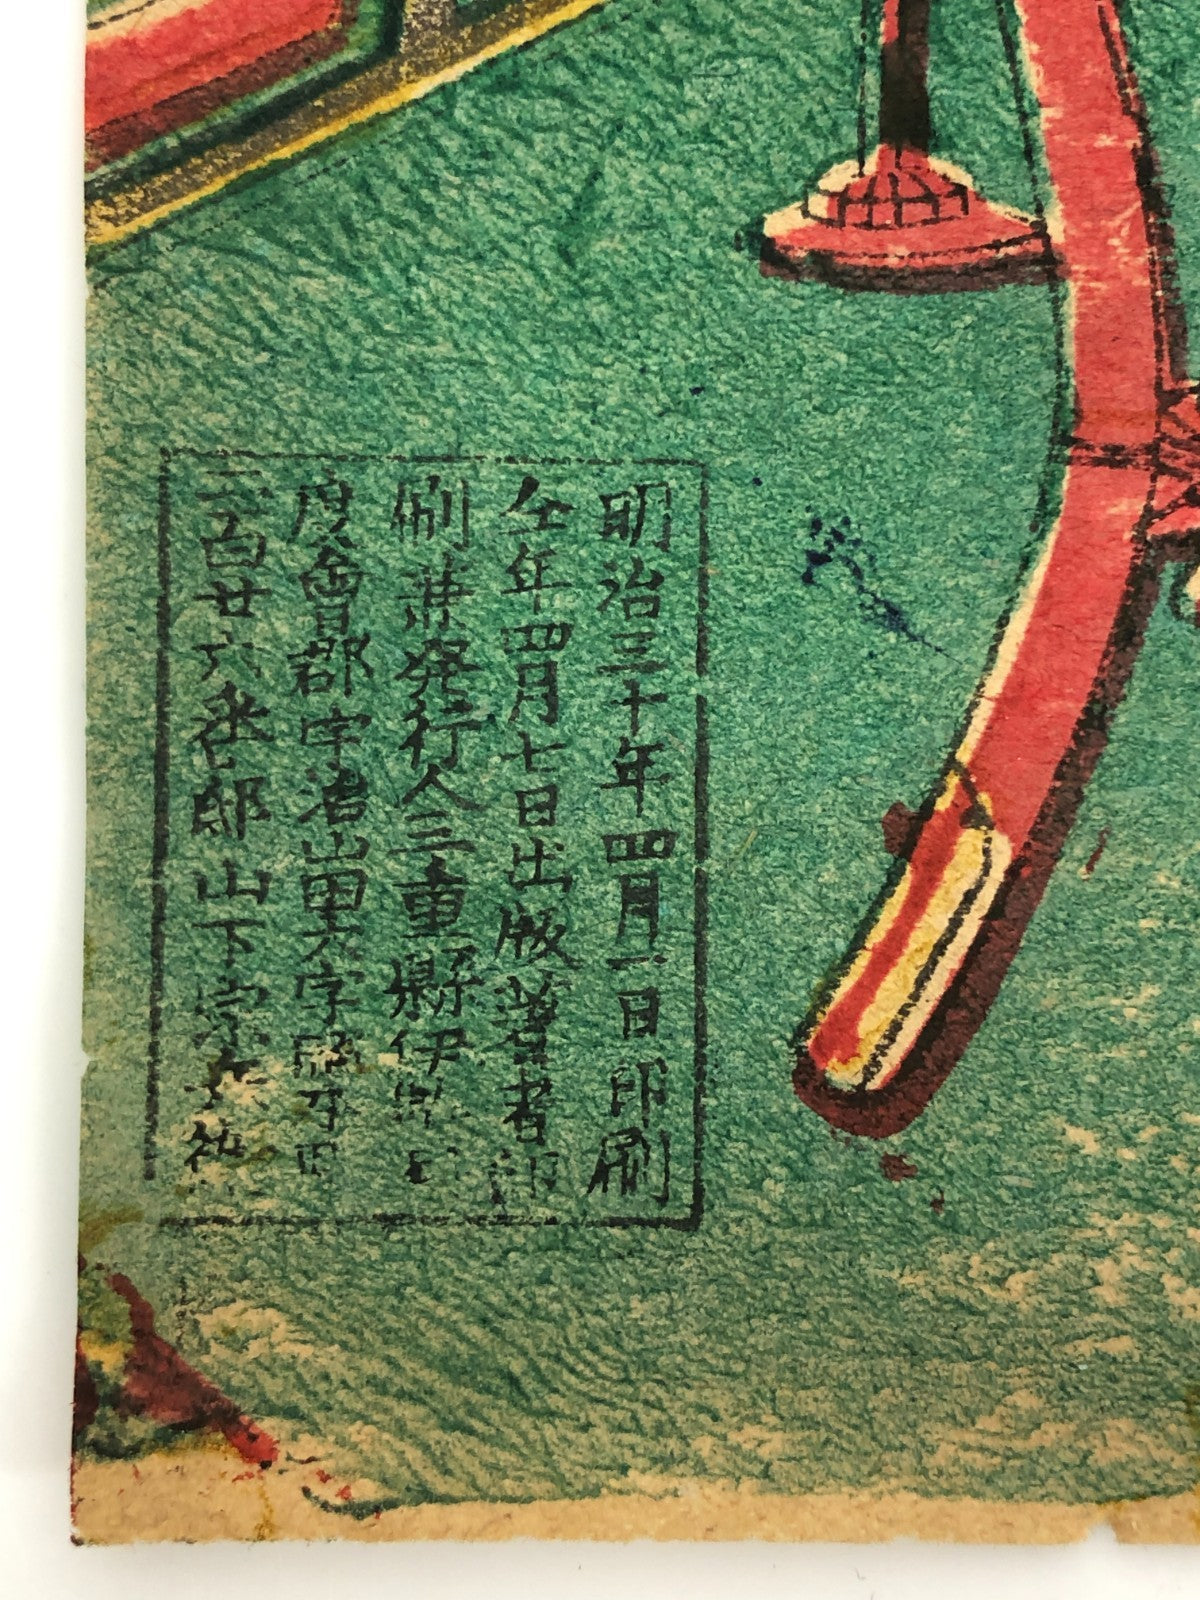 明治三十年四月一日印刷
仝年四月七日出版著者印
刷兼発行人三重縣伊勢国
度會郡宇治山田大字
三百廿六番邸山下宗